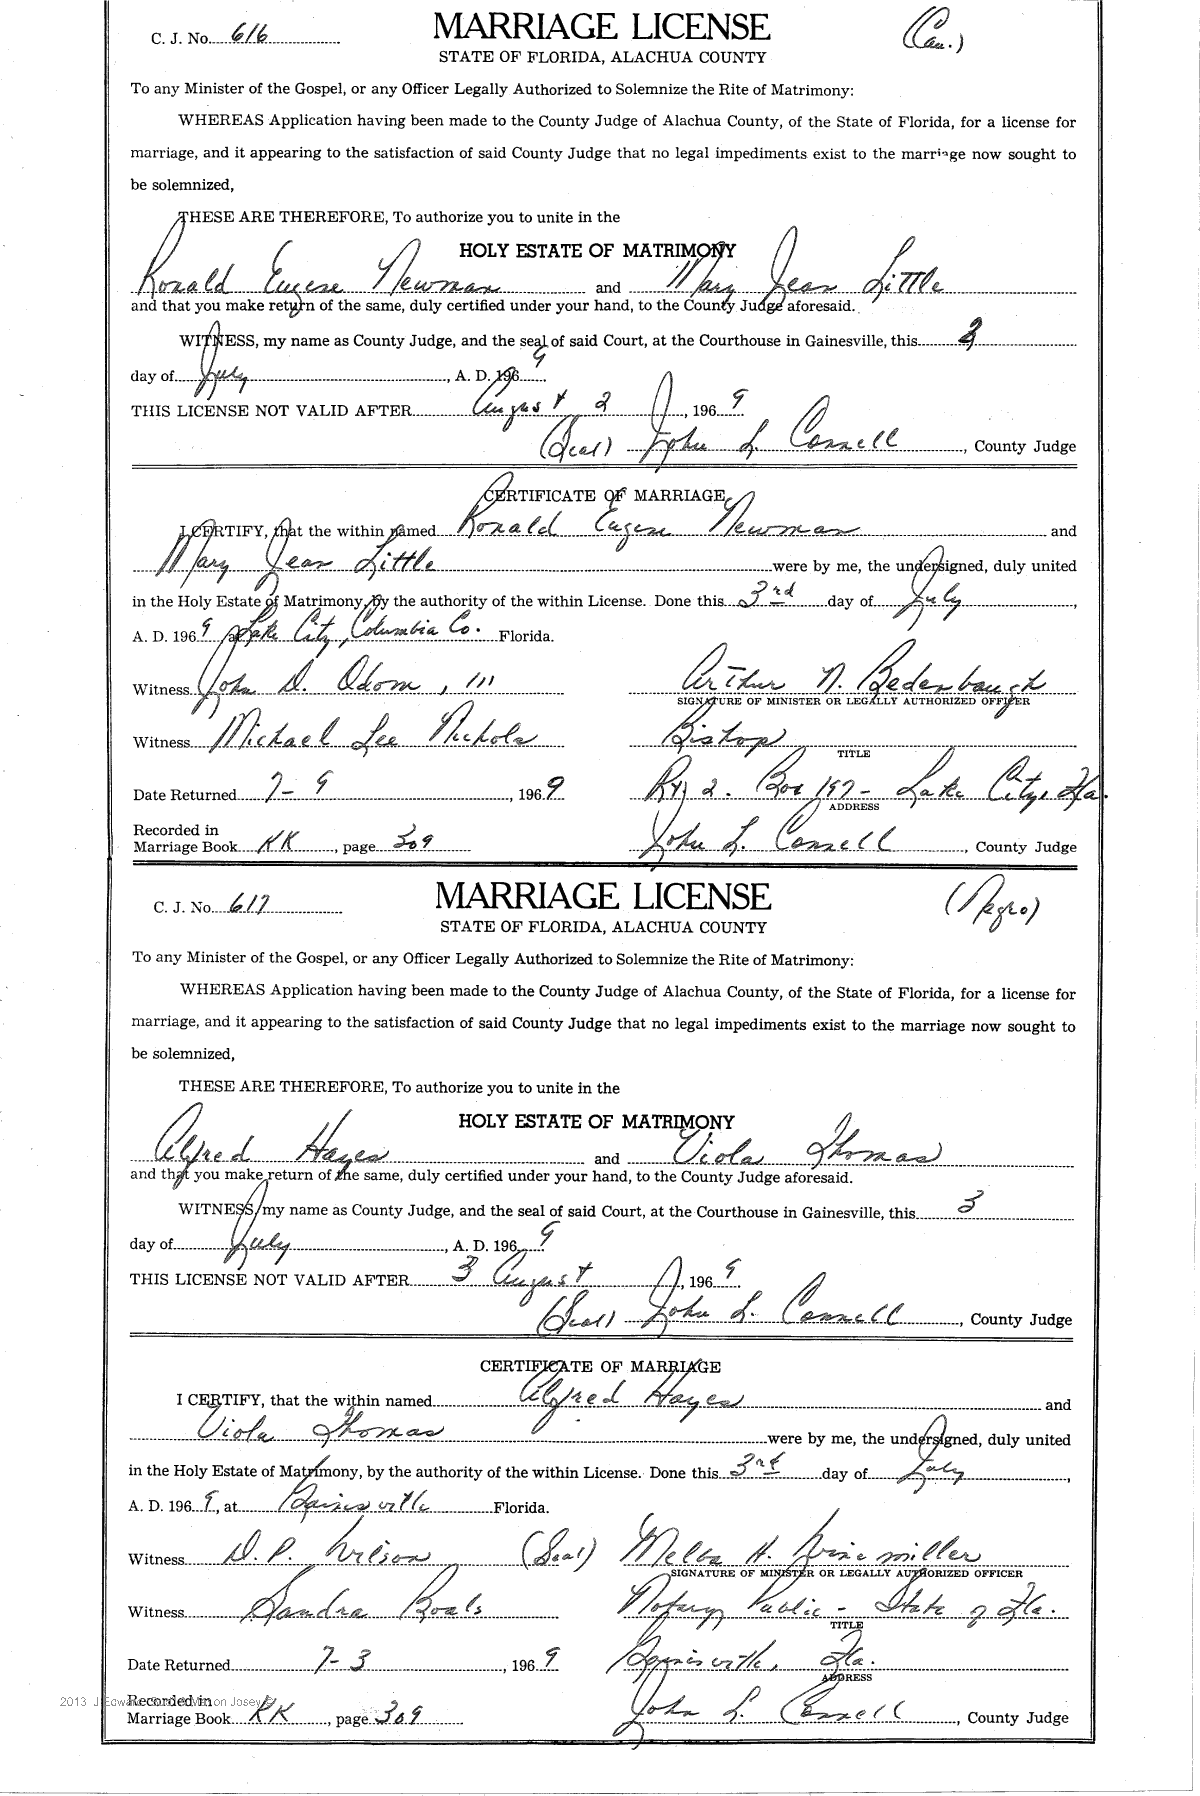 C. J. No. 616
MARRIAGE LICENSE
(Cau.)
STATE OF FLORIDA, ALACHUA COUNTY
To any Minister of the Gospel, or any Officer Legally Authorized to Solemnize the Rite of Matrimony:
WHEREAS Application having been made to the County Judge of Alachua County, of the State of Florida, for a license for
marriage, and it appearing to the satisfaction of said County Judge that no legal impediments exist to the marriage now sought to
be solemnized,
THESE ARE THEREFORE, To authorize you to unite in the
HOLY ESTATE OF MATRIMONY
Ronald Eugene Newman and Mary Jean Little
and that you make return of the same, duly certified under your hand, to the County Judge aforesaid.
WITNESS, my name as County Judge, and the seal of said Court, at the Courthouse in Gainesville, this
day of July, A. D. 1969
THIS LICENSE NOT VALID AFTER August 2, 1969
(Seal) John L. Connell, County Judge
CERTIFICATE OF MARRIAGE
I CERTIFY, that the within named Ronald Eugene Newman and
Mary Jean Little were by me, the undersigned, duly united
in the Holy Estate of Matrimony, by the authority of the within License. Done this 3rd day of July,
A. D. 1969, at Lake City, Columbia Co. Florida.
Witness John D. Odom, III Arthur N. Bedenbaugh
SIGNATURE OF MINISTER OR LEGALLY AUTHORIZED OFFICER
Witness Michael Lee Nichols Bishop
TITLE
Date Returned 7-9, 1969 Rt 2. Box 197- Lake City, Fla.
ADDRESS
Recorded in
Marriage Book KK, page 309 John L. Connell, County Judge
C. J. No. 617
MARRIAGE LICENSE
(Negro)
STATE OF FLORIDA, ALACHUA COUNTY
To any Minister of the Gospel, or any Officer Legally Authorized to Solemnize the Rite of Matrimony:
WHEREAS Application having been made to the County Judge of Alachua County, of the State of Florida, for a license for
marriage, and it appearing to the satisfaction of said County Judge that no legal impediments exist to the marriage now sought to
be solemnized,
THESE ARE THEREFORE, To authorize you to unite in the
HOLY ESTATE OF MATRIMONY
Alfred Hayes and Viola Thomas
and that you make return of the same, duly certified under your hand, to the County Judge aforesaid.
WITNESS, my name as County Judge, and the seal of said Court, at the Courthouse in Gainesville, this 3
day of July, A. D. 1969
THIS LICENSE NOT VALID AFTER 3 August, 1969
(Seal) John L. Connell, County Judge
CERTIFICATE OF MARRIAGE
I CERTIFY, that the within named Alfred Hayes and
Viola Thomas were by me, the undersigned, duly united
in the Holy Estate of Matrimony, by the authority of the within License. Done this 3rd day of July,
A. D. 1969, at Gainesville Florida.
Witness D. P. Wilson (Seal) Melba H. Winemiller
SIGNATURE OF MINISTER OR LEGALLY AUTHORIZED OFFICER
Witness Sandra Boals Notary Public - State of Fla.
TITLE
Date Returned 7-3, 1969 Gainesville, Fla.
ADDRESS
Recorded in
Marriage Book KK, page 309 John L. Connell, County Judge
2013 Josey